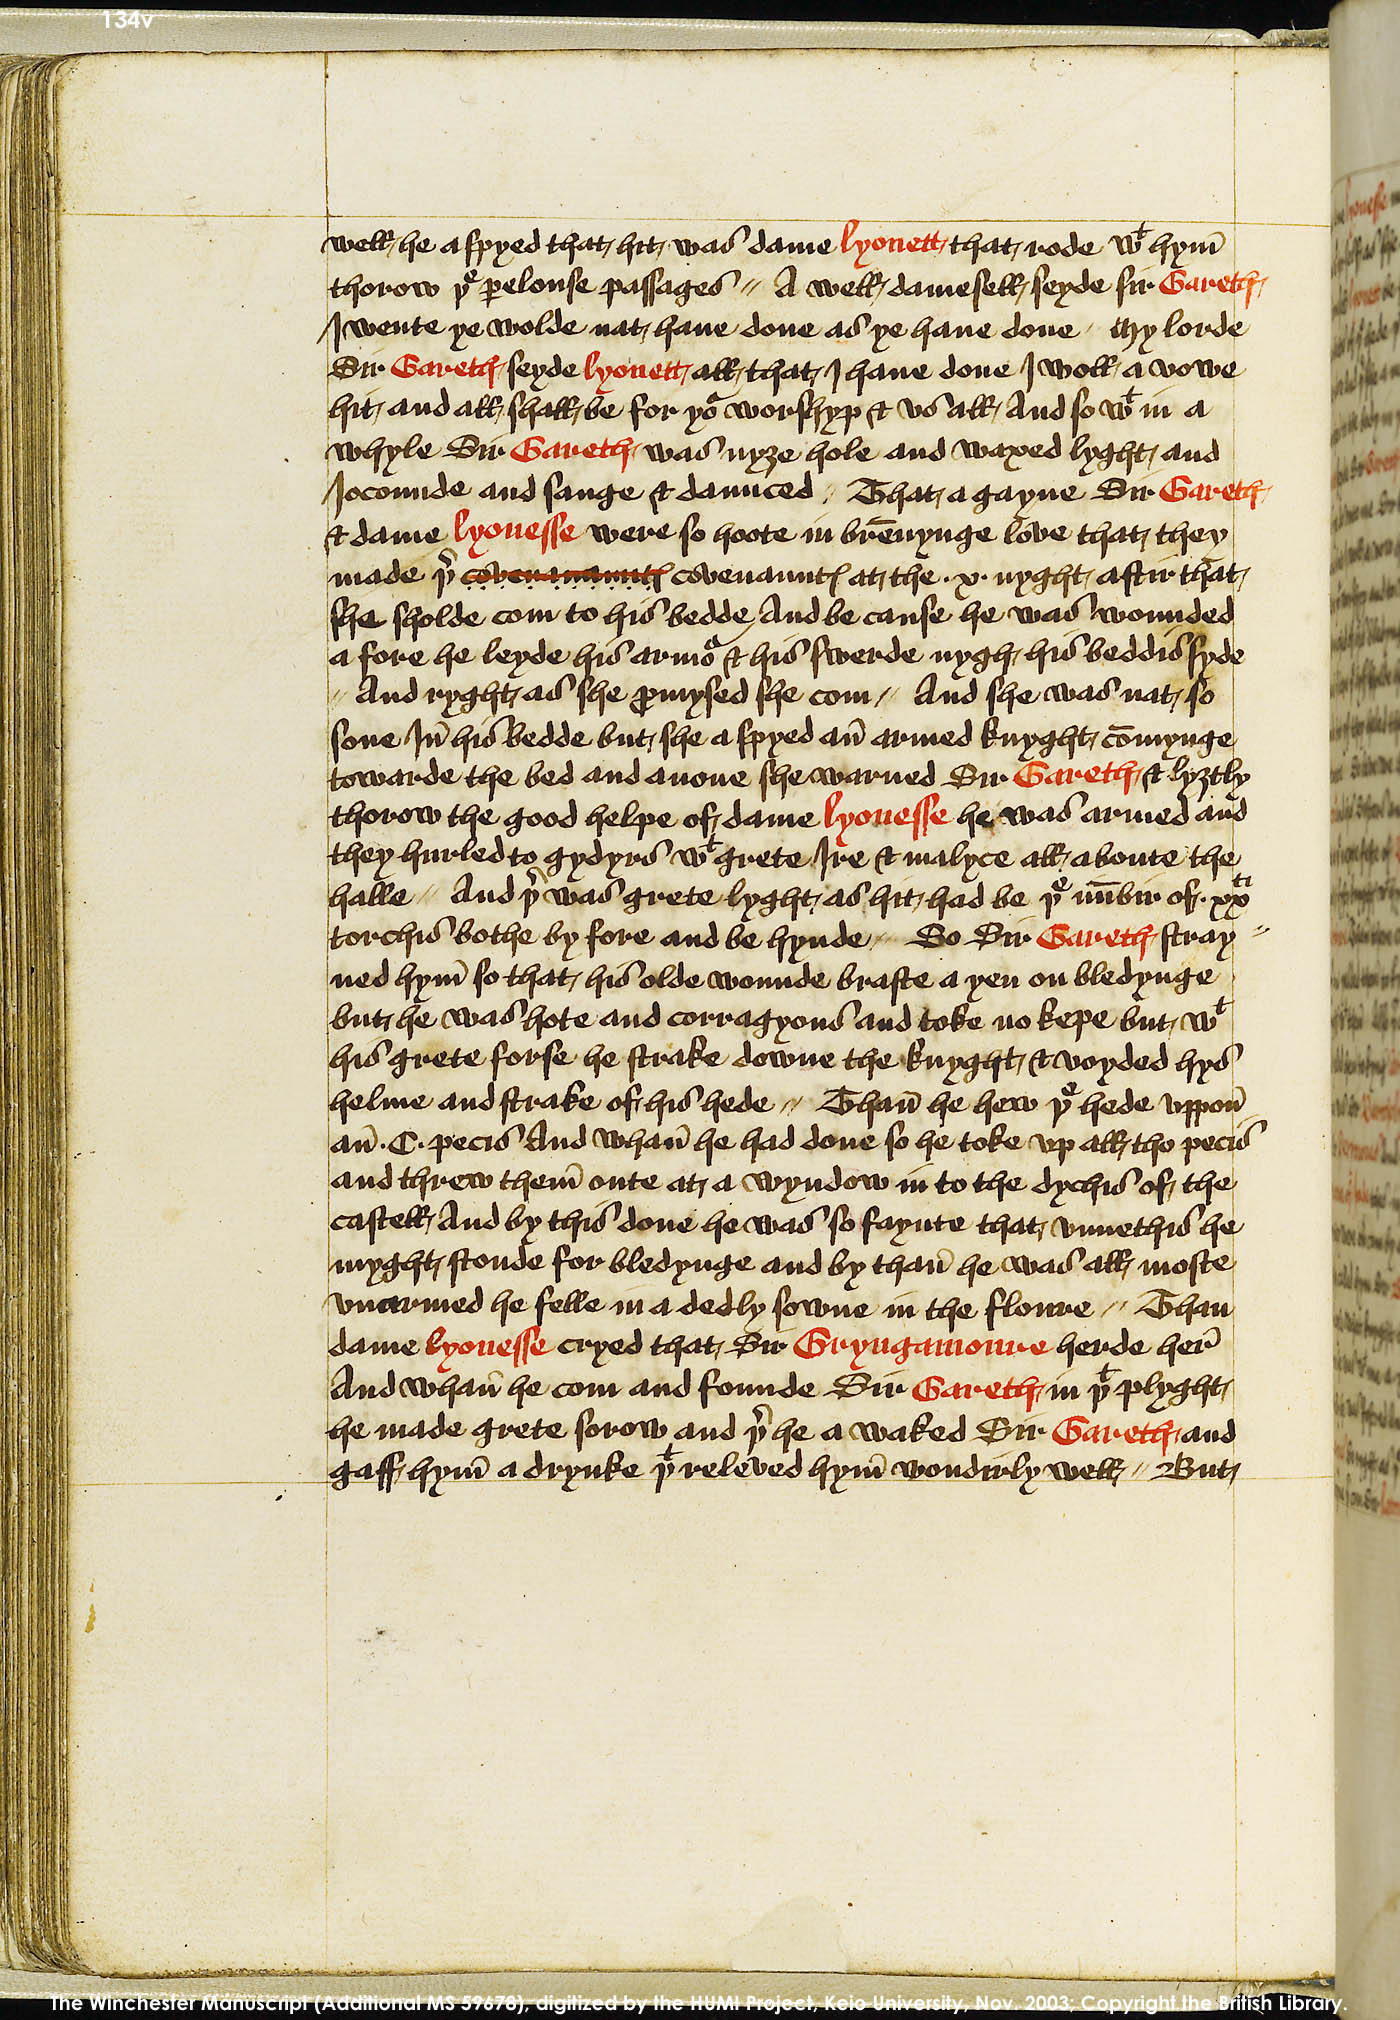 134v
well he aspyed that hit was dame lyonett that rode wᵗ hym̄
thorow yᵉ ꝑelouse passages // A well damesell seyde sir Gareth
I wente ye wolde nat haue done as ye haue done // My lorde
Sir Gareth seyde lyonett all that I haue done I woll a vowe
hit and all shall be for yoʳ worshyp & vs all And so wᵗ in a
whyle Sir Gareth was nyȝe hole and waxed lyght and
Iocounde and sange & daunced // That a gayne Sir Gareth
& dame lyonesse were so hoote in brēnynge love that they
made þʳ covenanauntꝭ covenauntꝭ at the .x. nyght aftir that
she sholde com to his bedde And be cause he was wounded
a fore he leyde his armoʳ & his swerde nygh his beddis syde
// And ryght as she ꝓmysed she com // And she was nat so
sone In̄ his bedde but she a spyed an̄ armed knyght cōmynge
towarde the bed and anone she warned Sir Gareth & lyȝtly
thorow the good helpe of dame lyonesse he was armed and
they hurled to gydyrs wᵗ grete Ire & malyce all aboute the
halle // And þʳ was grete lyght as hit had be yᵉ nūbir of .xxᵗⁱ
torchis bothe by fore and be hynde // So Sir Gareth stray //
ned hym̄ so that his olde wounde braste a yen on bledynge
but he was hote and corragyous and toke no kepe but wᵗ
his grete forse he strake downe the knyght & voyded hys
helme and strake of his hede // Than̄ he hew yᵉ hede vppon̄
an̄ .C. pecis And whan̄ he had done so he toke vp all tho pecis
and threw them̄ oute at a wyndow in to the dychis of the
castell And by this done he was so faynte that vnnethis he
myght stonde for bledynge and by than̄ he was all moste
vnarmed he felle in a dedly sowne in the floure // Than
dame lyonesse cryed that Sir Gryngamoure herde her̄
And whan̄ he com and founde Sir Gareth in þᵗ plyght
he made grete sorow and þʳ he a waked Sir Gareth and
gaff hym̄ a drynke þᵗ releved hym̄ wondirly well // But
The Winchester Manuscript (Additional MS 59678), digitized by the HUMI Project, Keio University, Nov. 2003; Copyright the British Library.